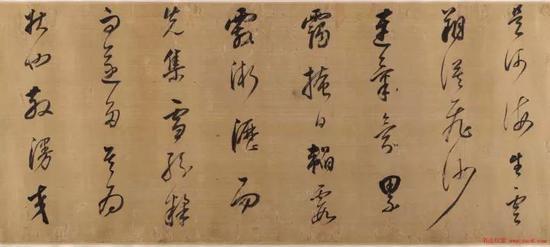 是河海生雲
朔漠飛沙
連氣氛累
靄掩日韜霞
霰淅瀝而
先集雪紛糅
而遂多其為
狀也散漫交